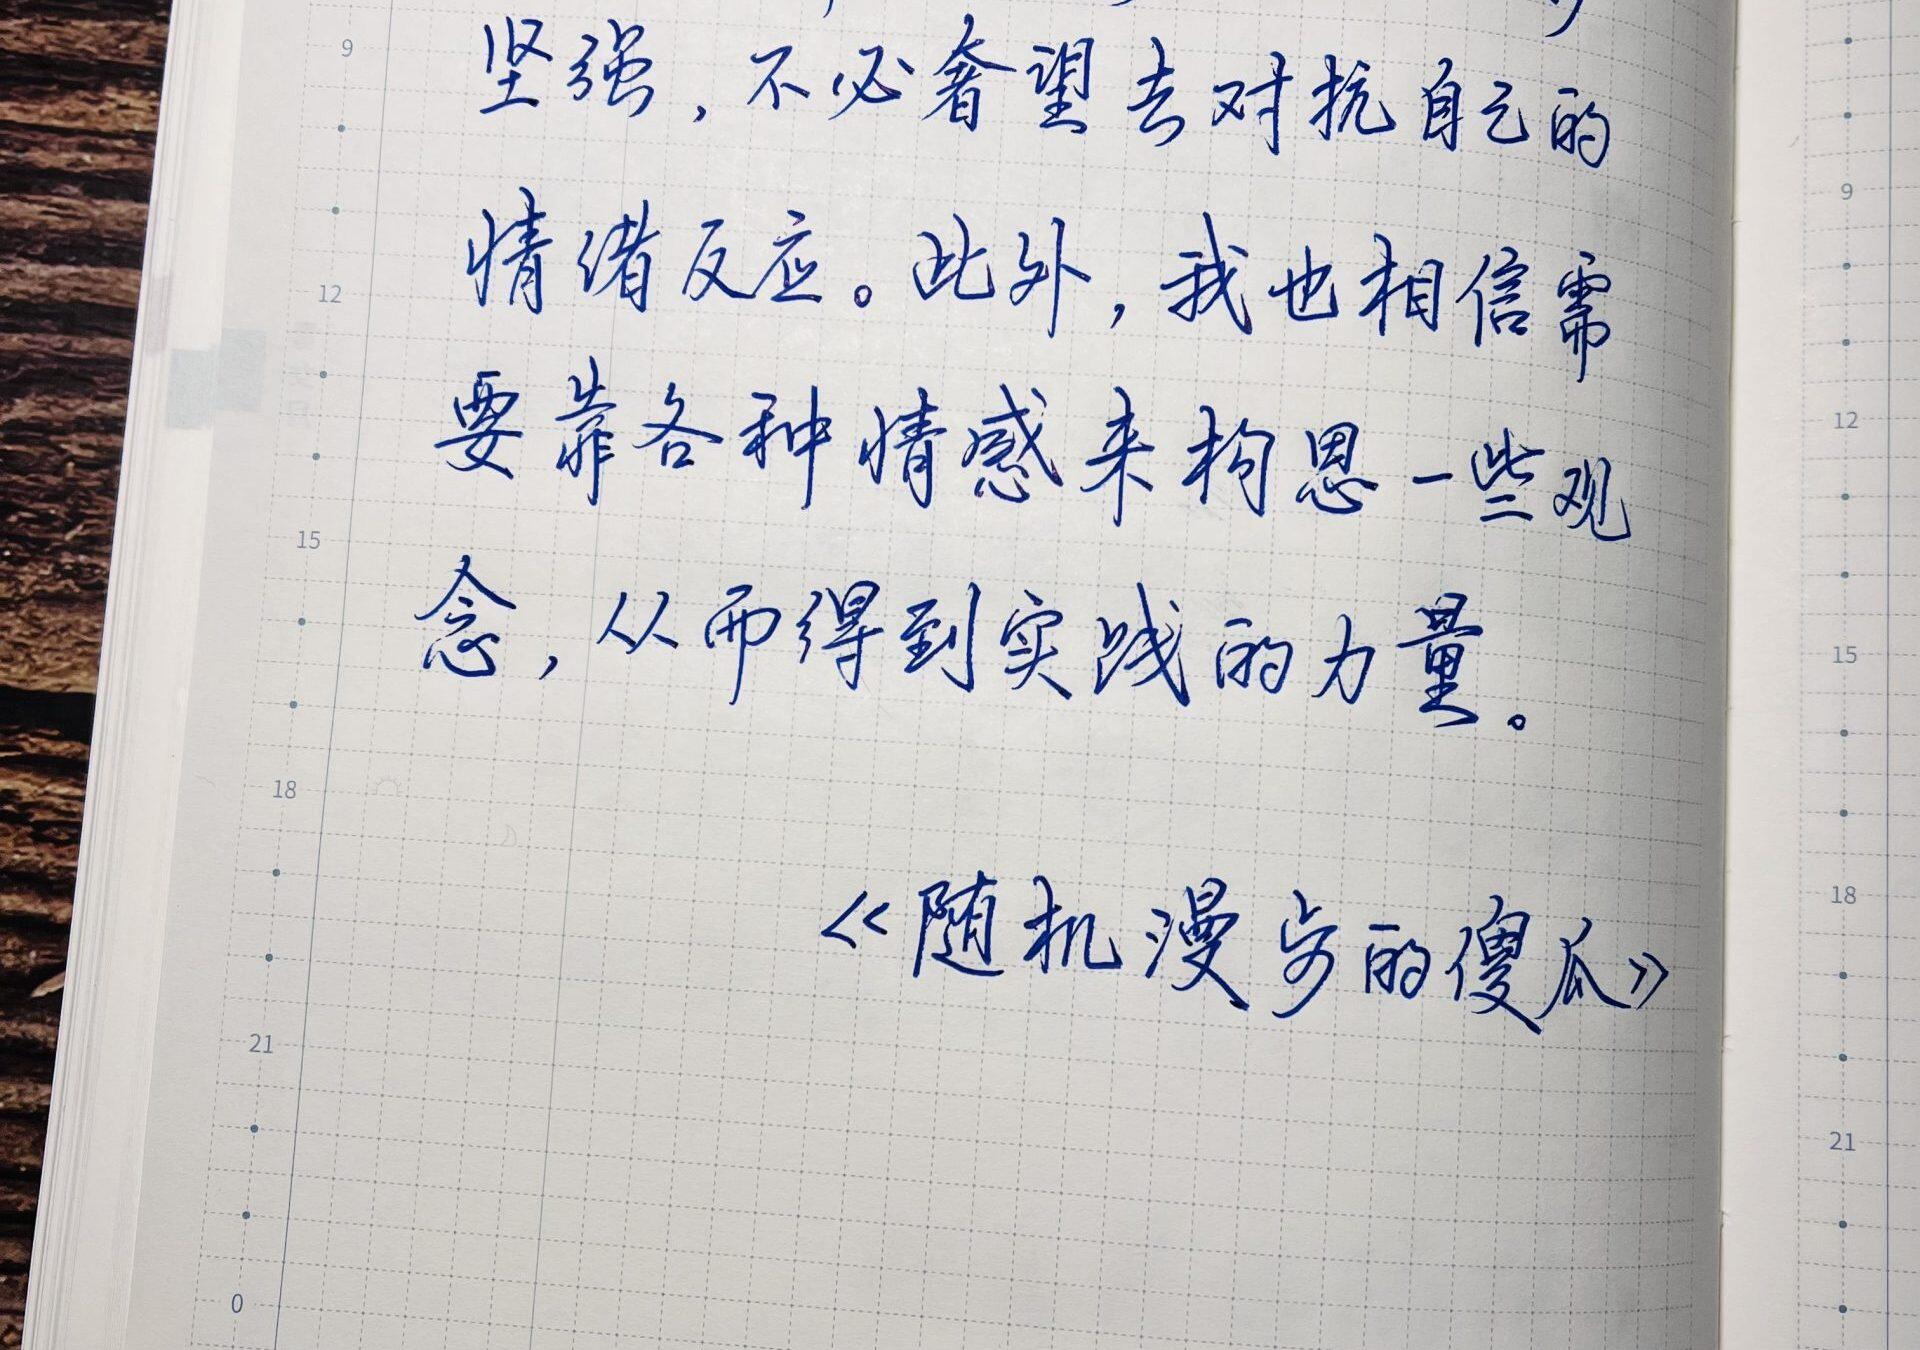 坚强，不必奢望去对抗自己的
情绪反应。此外，我也相信需
要靠各种情感来构思一些观
念，从而得到实践的力量。
《随机漫步的傻瓜》
9
12
15
18
21
0
9
12
15
18
21